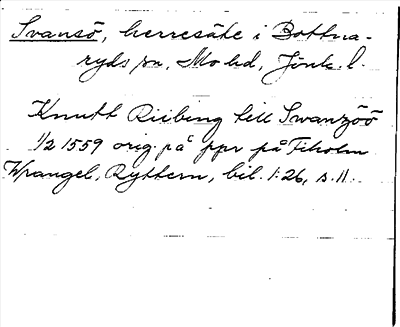 Svansö, herresäte i Bottna-
ryds sn, Mo hd, Jönk. l.
Knutt Riibing till Swanzöö
1/2 1559 orig. på ppr på Tiholm
Wrangel, Ryttern, bil. 1:26, s. 11.